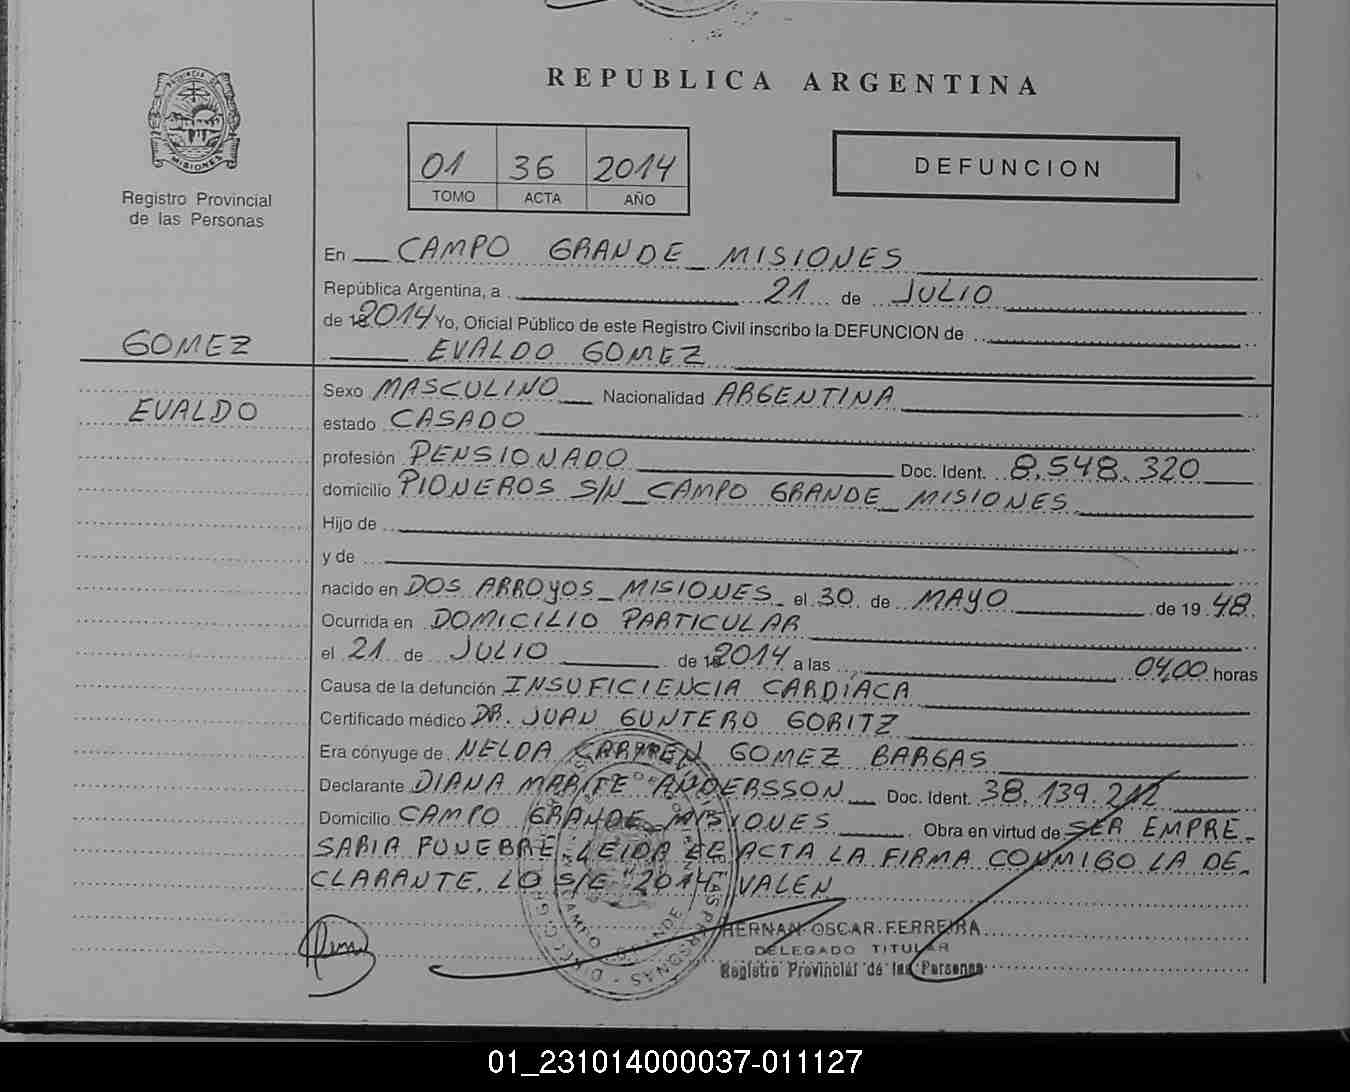 REPUBLICA ARGENTINA
PROVINCIA DE
MISIONES
Registro Provincial
de las Personas
01 36 2014
TOMO ACTA AÑO
DEFUNCION
En CAMPO GRANDE _ MISIONES
República Argentina, a 21 de JULIO
de 192014 Yo, Oficial Público de este Registro Civil inscribo la DEFUNCION de
GOMEZ
EVALDO GOMEZ
EVALDO
Sexo MASCULINO Nacionalidad ARGENTINA
estado CASADO
profesión PENSIONADO Doc. Ident. 8,548,320
domicilio PIONEROS S/N _ CAMPO GRANDE _ MISIONES
Hijo de
y de
nacido en DOS ARROYOS _ MISIONES _ el 30 de MAYO de 19 48
Ocurrida en DOMICILIO PARTICULAR
el 21 de JULIO de 192014 a las 04,00 horas
Causa de la defunción INSUFICIENCIA CARDÍACA
Certificado médico DR. JUAN GUNTERO GORITZ
Era cónyuge de NELDA CARMEN GOMEZ BARGAS
Declarante DIANA MARITE ANDERSSON Doc. Ident. 38,139,212
Domicilio CAMPO GRANDE _ MISIONES Obra en virtud de SER EMPRE_
SARIA FUNEBRE. LEIDA EL ACTA LA FIRMA CONMIGO LA DE_
CLARANTE. LO S/E "2014" VALEN
HERNAN OSCAR FERREIRA
DELEGADO TITULAR
Registro Provincial de las Personas
01_231014000037-011127